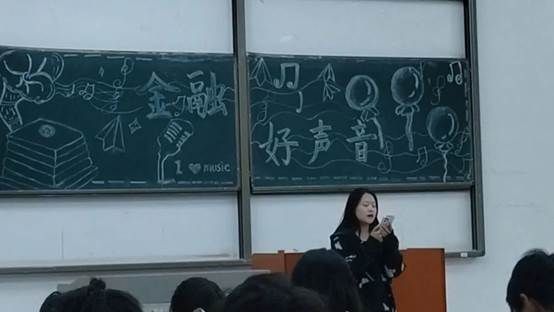 金融
好声音
I ❤ MUSIC